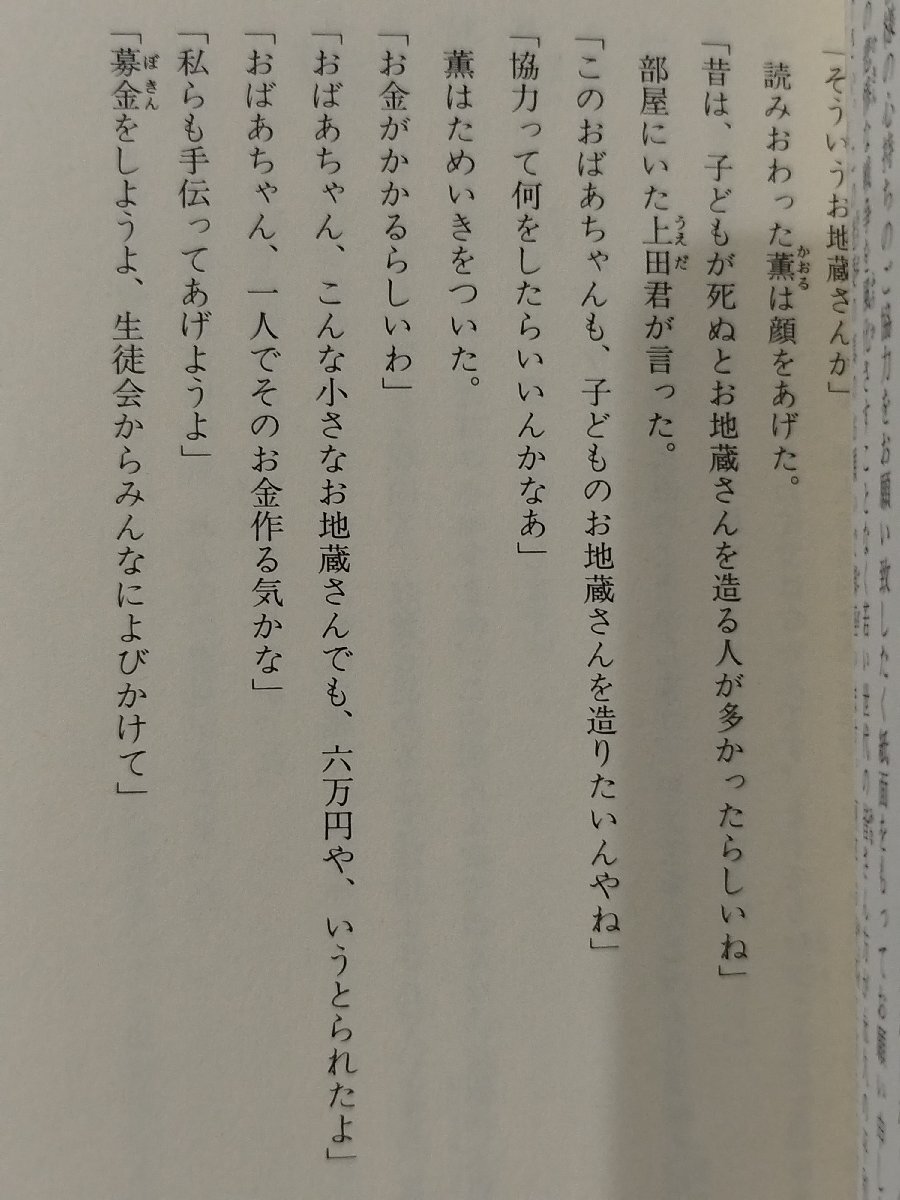 「そういうお地蔵さんか」
読みおわった薫は顔をあげた。
「昔は、子どもが死ぬとお地蔵さんを造る人が多かったらしいね」
部屋にいた上田君が言った。
「このおばあちゃんも、子どものお地蔵さんを造りたいんやね」
「協力って何をしたらいいんかなあ」
薫はためいきをついた。
「お金がかかるらしいわ」
「おばあちゃん、こんな小さなお地蔵さんでも、六万円や、いうとられたよ」
「おばあちゃん、一人でそのお金作る気かな」
「私らも手伝ってあげようよ」
「募金をしようよ、生徒会からみんなによびかけて」